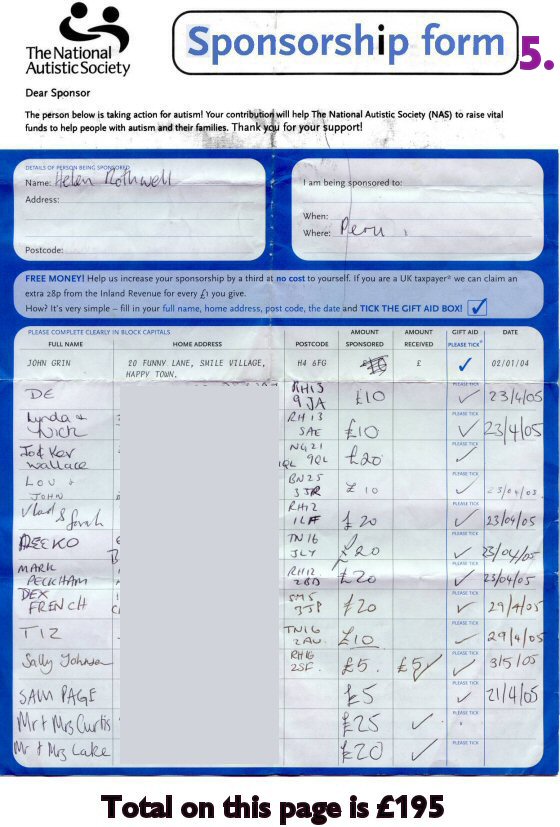 The National
Autistic Society
Sponsorship form 5.
Dear Sponsor
The person below is taking action for autism! Your contribution will help The National Autistic Society (NAS) to raise vital
funds to help people with autism and their families. Thank you for your support!
DETAILS OF PERSON BEING SPONSORED
Name: Helen Rothwell
Address:
Postcode:
I am being sponsored to:
When:
Where: Peru
FREE MONEY! Help us increase your sponsorship by a third at no cost to yourself. If you are a UK taxpayer* we can claim an
extra 28p from the Inland Revenue for every £1 you give.
How? It's very simple – fill in your full name, home address, post code, the date and TICK THE GIFT AID BOX!
PLEASE COMPLETE CLEARLY IN BLOCK CAPITALS
FULL NAME HOME ADDRESS POSTCODE AMOUNT SPONSORED AMOUNT RECEIVED GIFT AID PLEASE TICK* DATE
JOHN GRIN 20 FUNNY LANE, SMILE VILLAGE, H4 6FG £ 02/01/04
HAPPY TOWN.
PLEASE TICK
DE RH13 £10 23/4/05
9JA
PLEASE TICK
Lynda & RH13 £10 23/4/05
Nick 5AE
PLEASE TICK
Jo & Kev NG21 £20
Wallace 9QL
PLEASE TICK
Lou & BN25 £10
John 3JR
PLEASE TICK
Vlad & RH12 £20 23/04/05
Sarah
PLEASE TICK
DEEKO TN16 £20 23/04/05
PLEASE TICK
MARK RH12 £20 23/04/05
PECKHAM
PLEASE TICK
DEX SM5 £20 29/4/05
FRENCH
PLEASE TICK
TIZ TN16 £10 29/4/05
PLEASE TICK
Sally RH16 £5 £5 3/5/05
2SF
PLEASE TICK
SAM PAGE £5 21/4/05
PLEASE TICK
Mr + Mrs Curtis £25
PLEASE TICK
Mr + Mrs Lake £20
Total on this page is £195